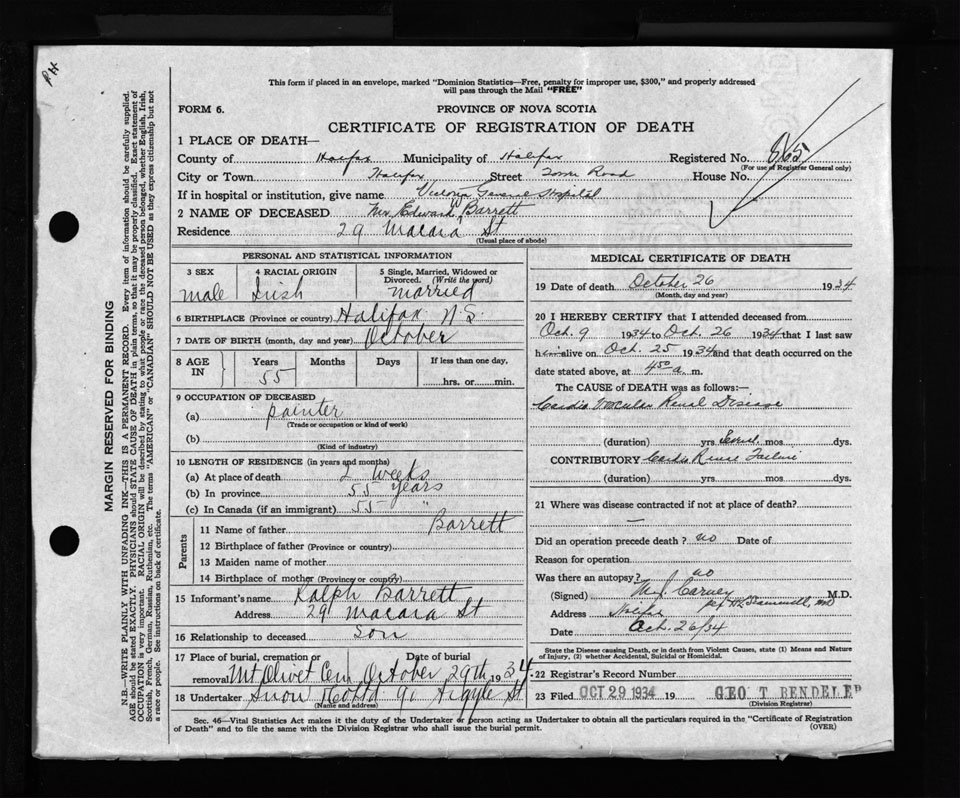 This form if placed in an envelope, marked "Dominion Statistics—Free, penalty for improper use, $300," and properly addressed
will pass through the Mail "FREE"
FORM 6.
PROVINCE OF NOVA SCOTIA
CERTIFICATE OF REGISTRATION OF DEATH
1 PLACE OF DEATH—
County of Halifax Municipality of Halifax Registered No. 865
(For use of Registrar General only)
City or Town Halifax Street Road House No.
If in hospital or institution, give name Victoria General Hospital
2 NAME OF DECEASED Edward Barrett
Residence 29 Macara St
(Usual place of abode)
PERSONAL AND STATISTICAL INFORMATION
3 SEX male
4 RACIAL ORIGIN Irish
5 Single, Married, Widowed or Divorced. (Write the word) married
6 BIRTHPLACE (Province or country) Halifax N.S.
7 DATE OF BIRTH (month, day and year) October
8 AGE IN Years 55 Months Days If less than one day, hrs. or min.
9 OCCUPATION OF DECEASED
(a) painter
(Trade or occupation or kind of work)
(b)
(Kind of industry)
10 LENGTH OF RESIDENCE (in years and months)
(a) At place of death 2 weeks
(b) In province 55 years
(c) In Canada (if an immigrant) 55 "
Parents
11 Name of father Barrett
12 Birthplace of father (Province or country)
13 Maiden name of mother
14 Birthplace of mother (Province or country)
15 Informant's name Ralph Barrett
Address 29 Macara St
16 Relationship to deceased son
17 Place of burial, cremation or removal Mt Olivet Cem
Date of burial October 29th 1934
18 Undertaker Snow & Co Ltd 90 Argyle St
(Name and address)
MEDICAL CERTIFICATE OF DEATH
19 Date of death October 26 1934
(Month, day and year)
20 I HEREBY CERTIFY that I attended deceased from
Oct. 9 1934 to Oct. 26 1934 that I last saw
him alive on Oct. 25 1934 and that death occurred on the
date stated above, at 4:50 a. m.
The CAUSE OF DEATH was as follows:—
Cardio Vascular Renal Disease
(duration) yrs mos dys.
CONTRIBUTORY Cardio Renal Failure
(duration) yrs. mos. dys.
21 Where was disease contracted if not at place of death?
—
Did an operation precede death? no Date of
Reason for operation
Was there an autopsy? no
(Signed) M.J. Carney M.D.
Address Halifax
Date Oct. 26/34
State the Disease causing Death, or in death from Violent Causes, state (1) Means and Nature
of Injury, (2) whether Accidental, Suicidal or Homicidal.
22 Registrar's Record Number
23 Filed OCT 29 1934 19 GEO T BENDELEP
(Division Registrar)
Sec. 46—Vital Statistics Act makes it the duty of the Undertaker or person acting as Undertaker to obtain all the particulars required in the "Certificate of Registration
of Death" and to file the same with the Division Registrar who shall issue the burial permit.
(OVER)
MARGIN RESERVED FOR BINDING
N.B.—WRITE PLAINLY WITH UNFADING INK—THIS IS A PERMANENT RECORD. Every item of information should be carefully supplied.
AGE should be stated EXACTLY. PHYSICIANS should STATE CAUSE OF DEATH in plain terms, so that it may be properly classified. Exact statement of
OCCUPATION is very important. RACIAL ORIGIN will be described by stating to what people or race the deceased person belonged, whether English, Irish,
Scottish, French, German, Russian, Ruthenian, etc. The terms "AMERICAN" or "CANADIAN" SHOULD NOT BE USED as they express citizenship but not
a race or people. See instructions on back of certificate.